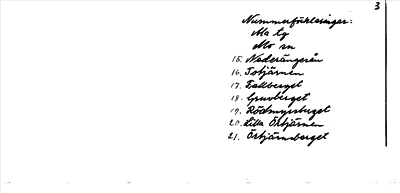 3
Nummerförklaringar:
Ma tg
Mo sn
15. Nederängsån
16. Totjärnen
17. Fallberget
18. Gruvberget
19. Rödmyrsberget
20. Lilla Örtjärnen
21. Örtjärnsberget